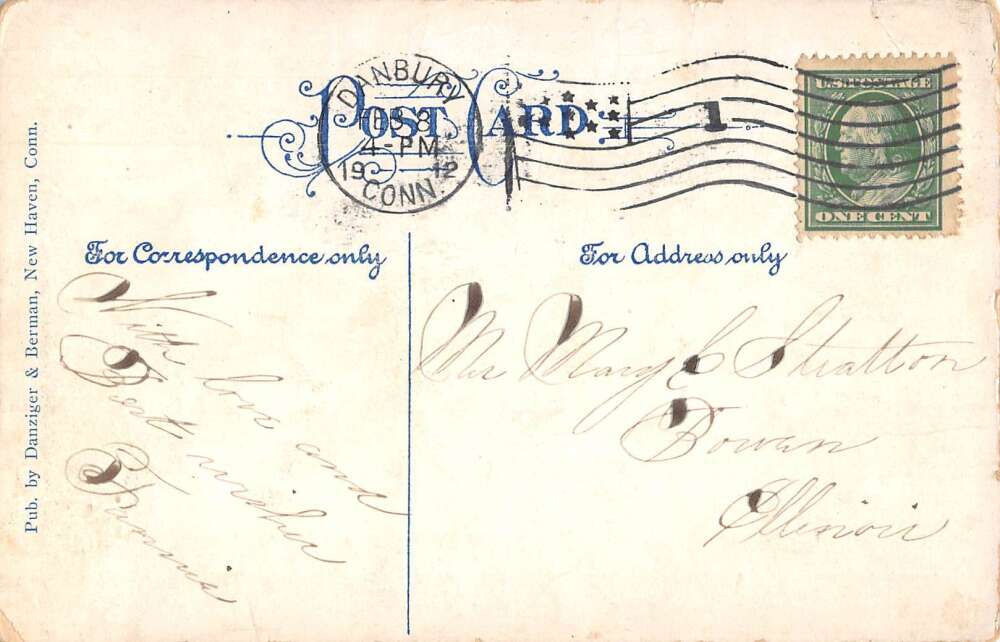 POST CARD
DANBURY
FEB 8
4-PM
19 12
CONN.
1
U.S. POSTAGE
ONE CENT
For Correspondence only
For Address only
With love and
Best wishes
Fannie
Mrs Mary E Stratton
Bowen
Illinois
Pub. by Danziger & Berman, New Haven, Conn.